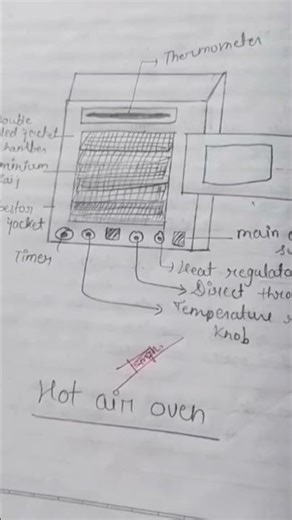 Thermometer
ouble
jacket
minium
jacket
Timer
main
Heat regulato
Direct thr
Temperature
Knob
Hot air oven